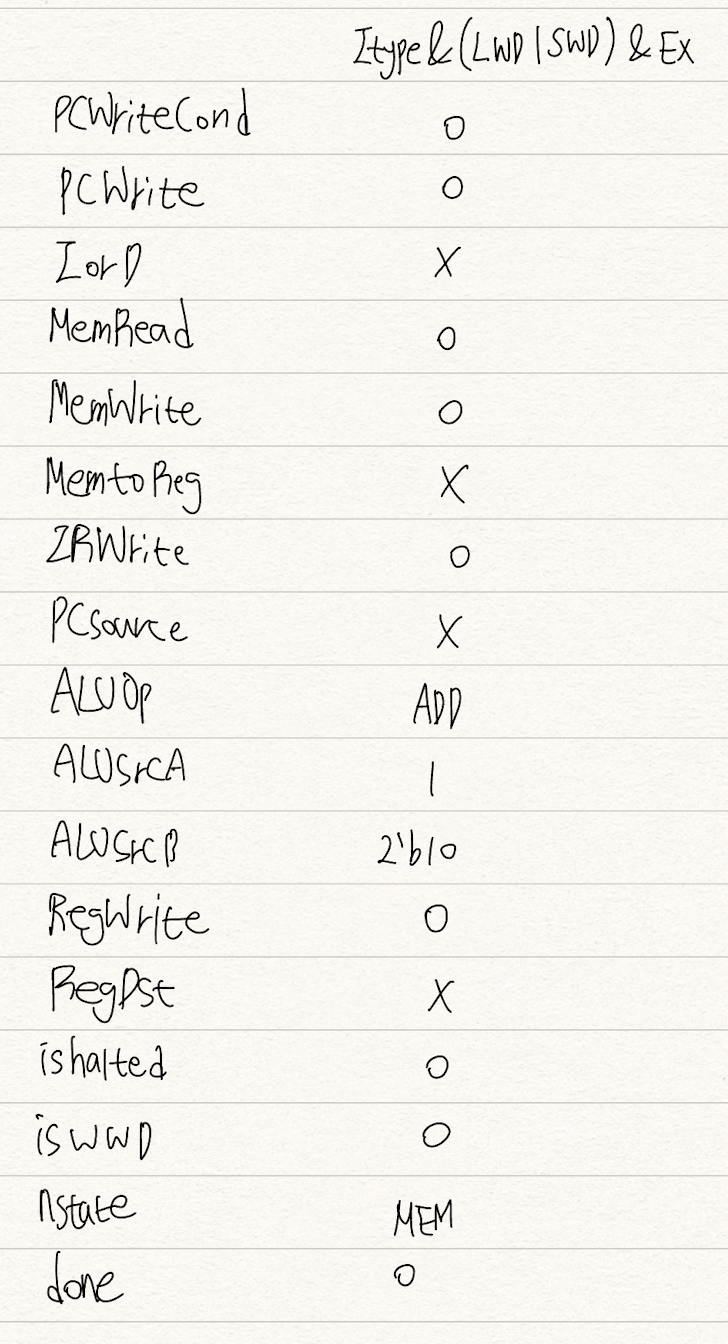 Itype & (LWD | SWD) & EX
PCWriteCond 0
PCWrite 0
IorD X
MemRead 0
MemWrite 0
MemtoReg X
IRWrite 0
PCsource X
ALUOp ADD
ALUSrcA 1
ALUSrcB 2'b10
RegWrite 0
RegDst X
ishalted 0
isWWD 0
nstate MEM
done 0